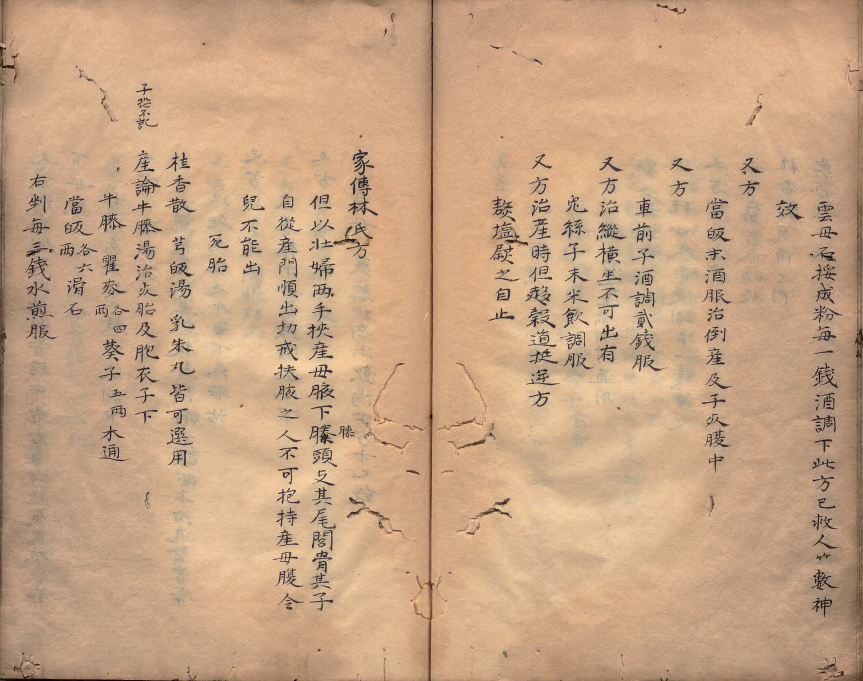 雲母石挼成粉每一錢酒調下此方已救人竹數神
效
又方
當皈末酒服治倒産及子死腹中
又方
車前子酒調貳錢服
又方治縱横生不可出有
兔絲子末米飲調服
又方治産時但移穀道挺逆方
熬塩熨之自止
家傳林氏方
但以壯婦兩手挾産母腋下
膝
頭攴其尾閭骨其子
自從産門順出切戒扶腋之人不可抱持産母腹令
兒不能出
死胎
桂香散 芎皈湯 乳朱丸 皆可選用
産論牛膝湯治死胎及胞衣子下
子恐不訛
牛膝 瞿麥各四兩 葵子五兩 木通
當皈各六兩 滑石
右剉每三錢水煎服